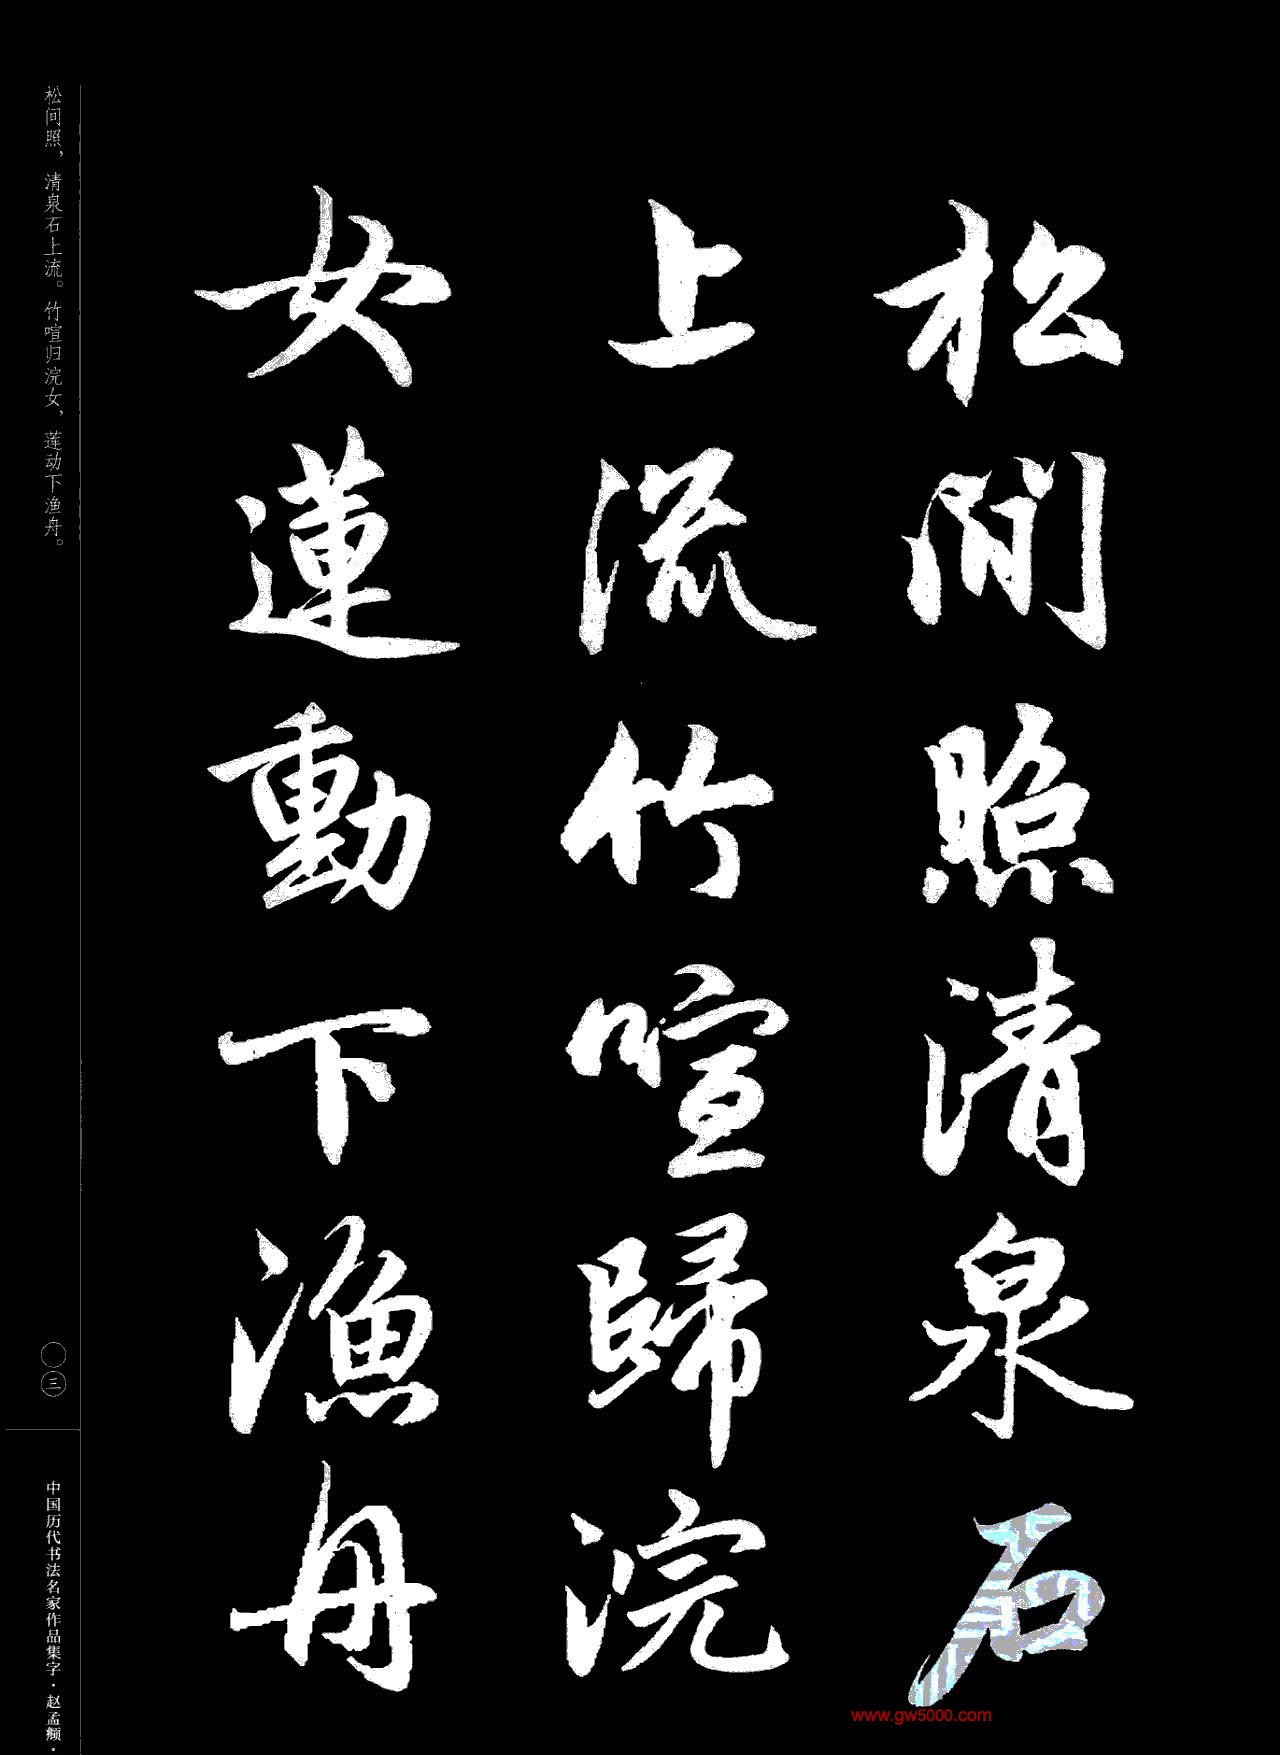 松間照清泉石
上流竹喧歸浣
女蓮動下漁舟
松间照，清泉石上流。竹喧归浣女，莲动下渔舟。
〇三
中国历代书法名家作品集字·赵孟頫·
www.gw5000.com